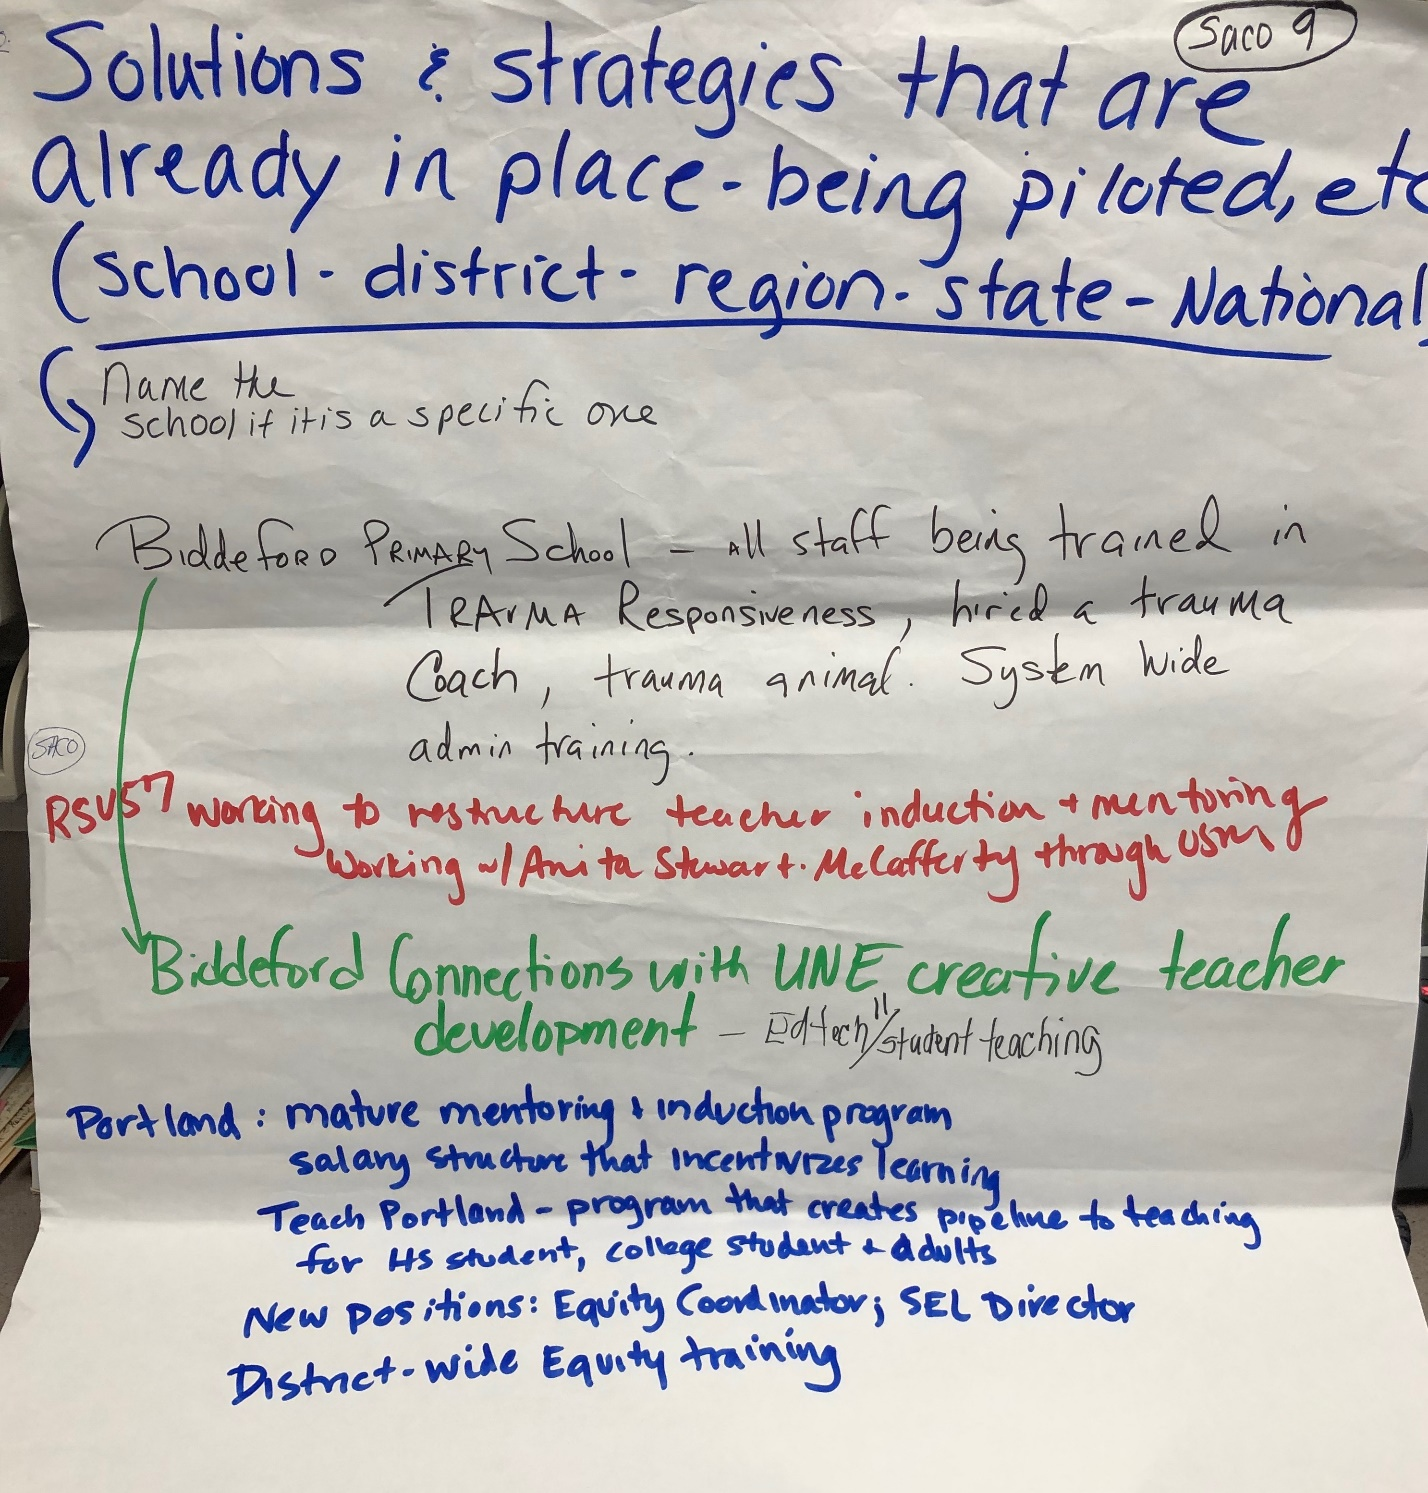 Saco 9
Solutions & strategies that are
already in place - being piloted, etc
(school - district - region - state - National)
Name the
school if it is a specific one
Biddeford Primary School - All staff being trained in
TRAUMA Responsiveness, hired a trauma
Coach, trauma animal. System Wide
admin training.
SACO
RSU57 working to restructure teacher induction + mentoring
working w/ Anita Stewart. McCafferty through USM
Biddeford Connections with UNE creative teacher
development - Edtech II/student teaching
Portland: mature mentoring + induction program
salary structure that incentivizes learning
Teach Portland - program that creates pipeline to teaching
for HS student, college student + adults
New positions: Equity Coordinator; SEL Director
District-wide Equity training